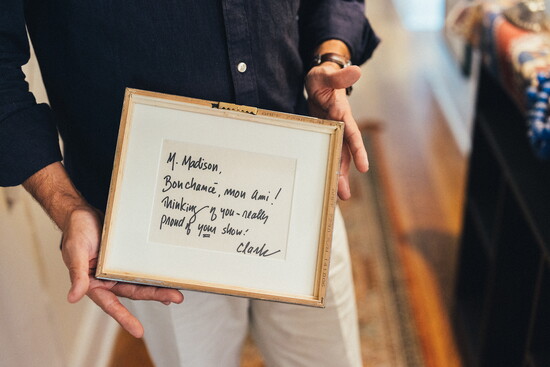 M. Madison,
Bonchancé, mon ami!
Thinking of you-really
proud of your show.
Clark